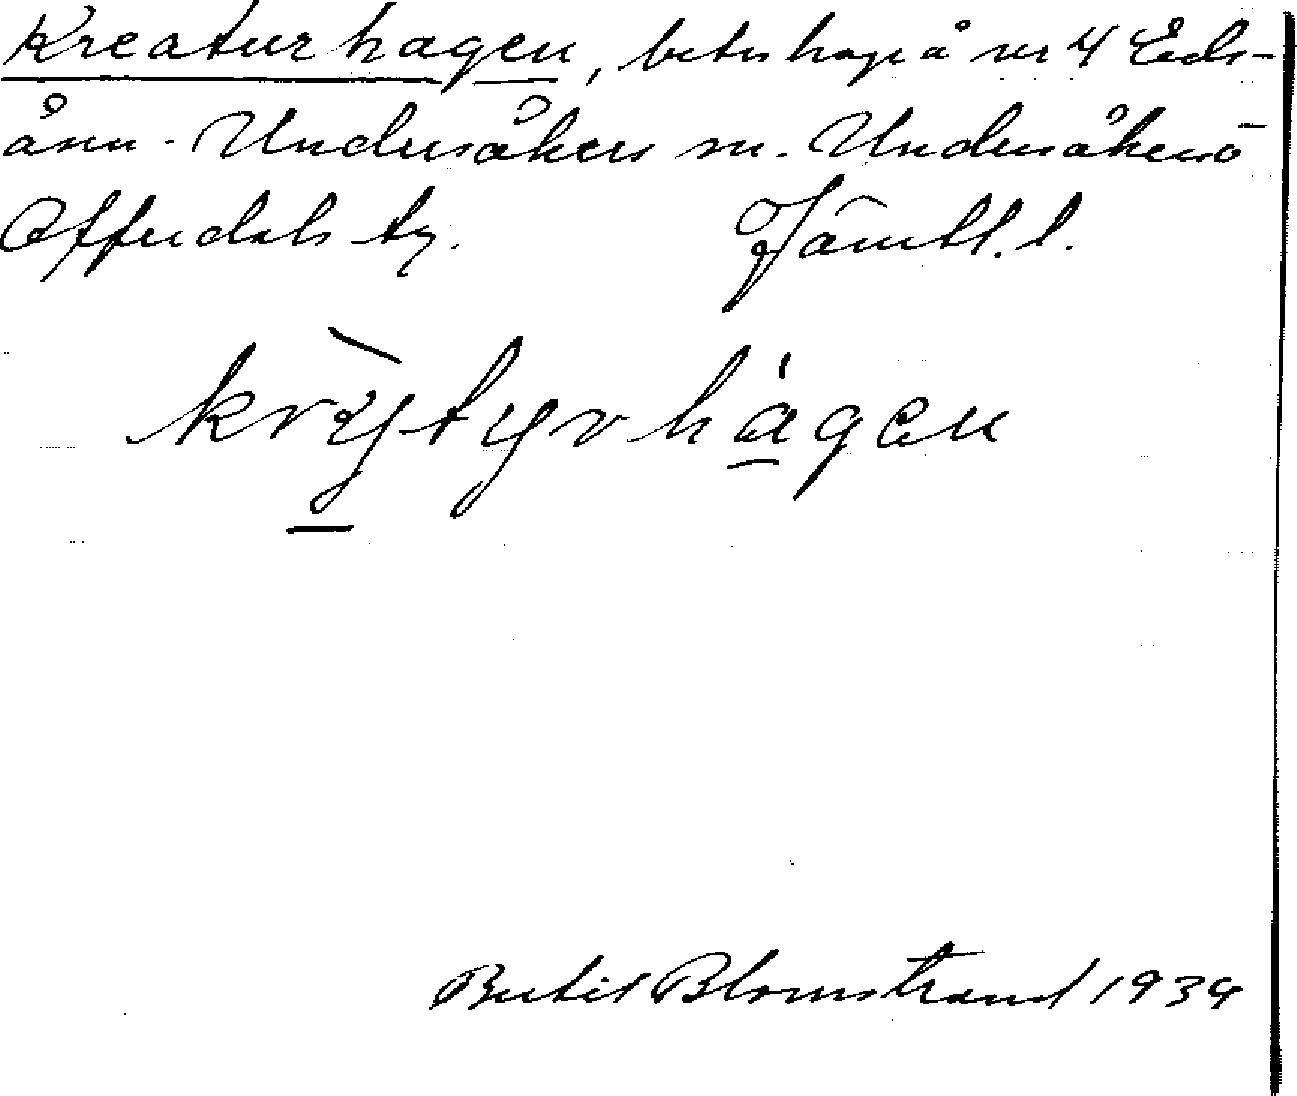 Kreaturhagen, beteshage å nr 4 Eds-
ånn. Undersåkers sn. Undersåkers o
Offerdals tg. Jämtl. l.
krỳtyrhágen
Bertil Blomstrand 1934